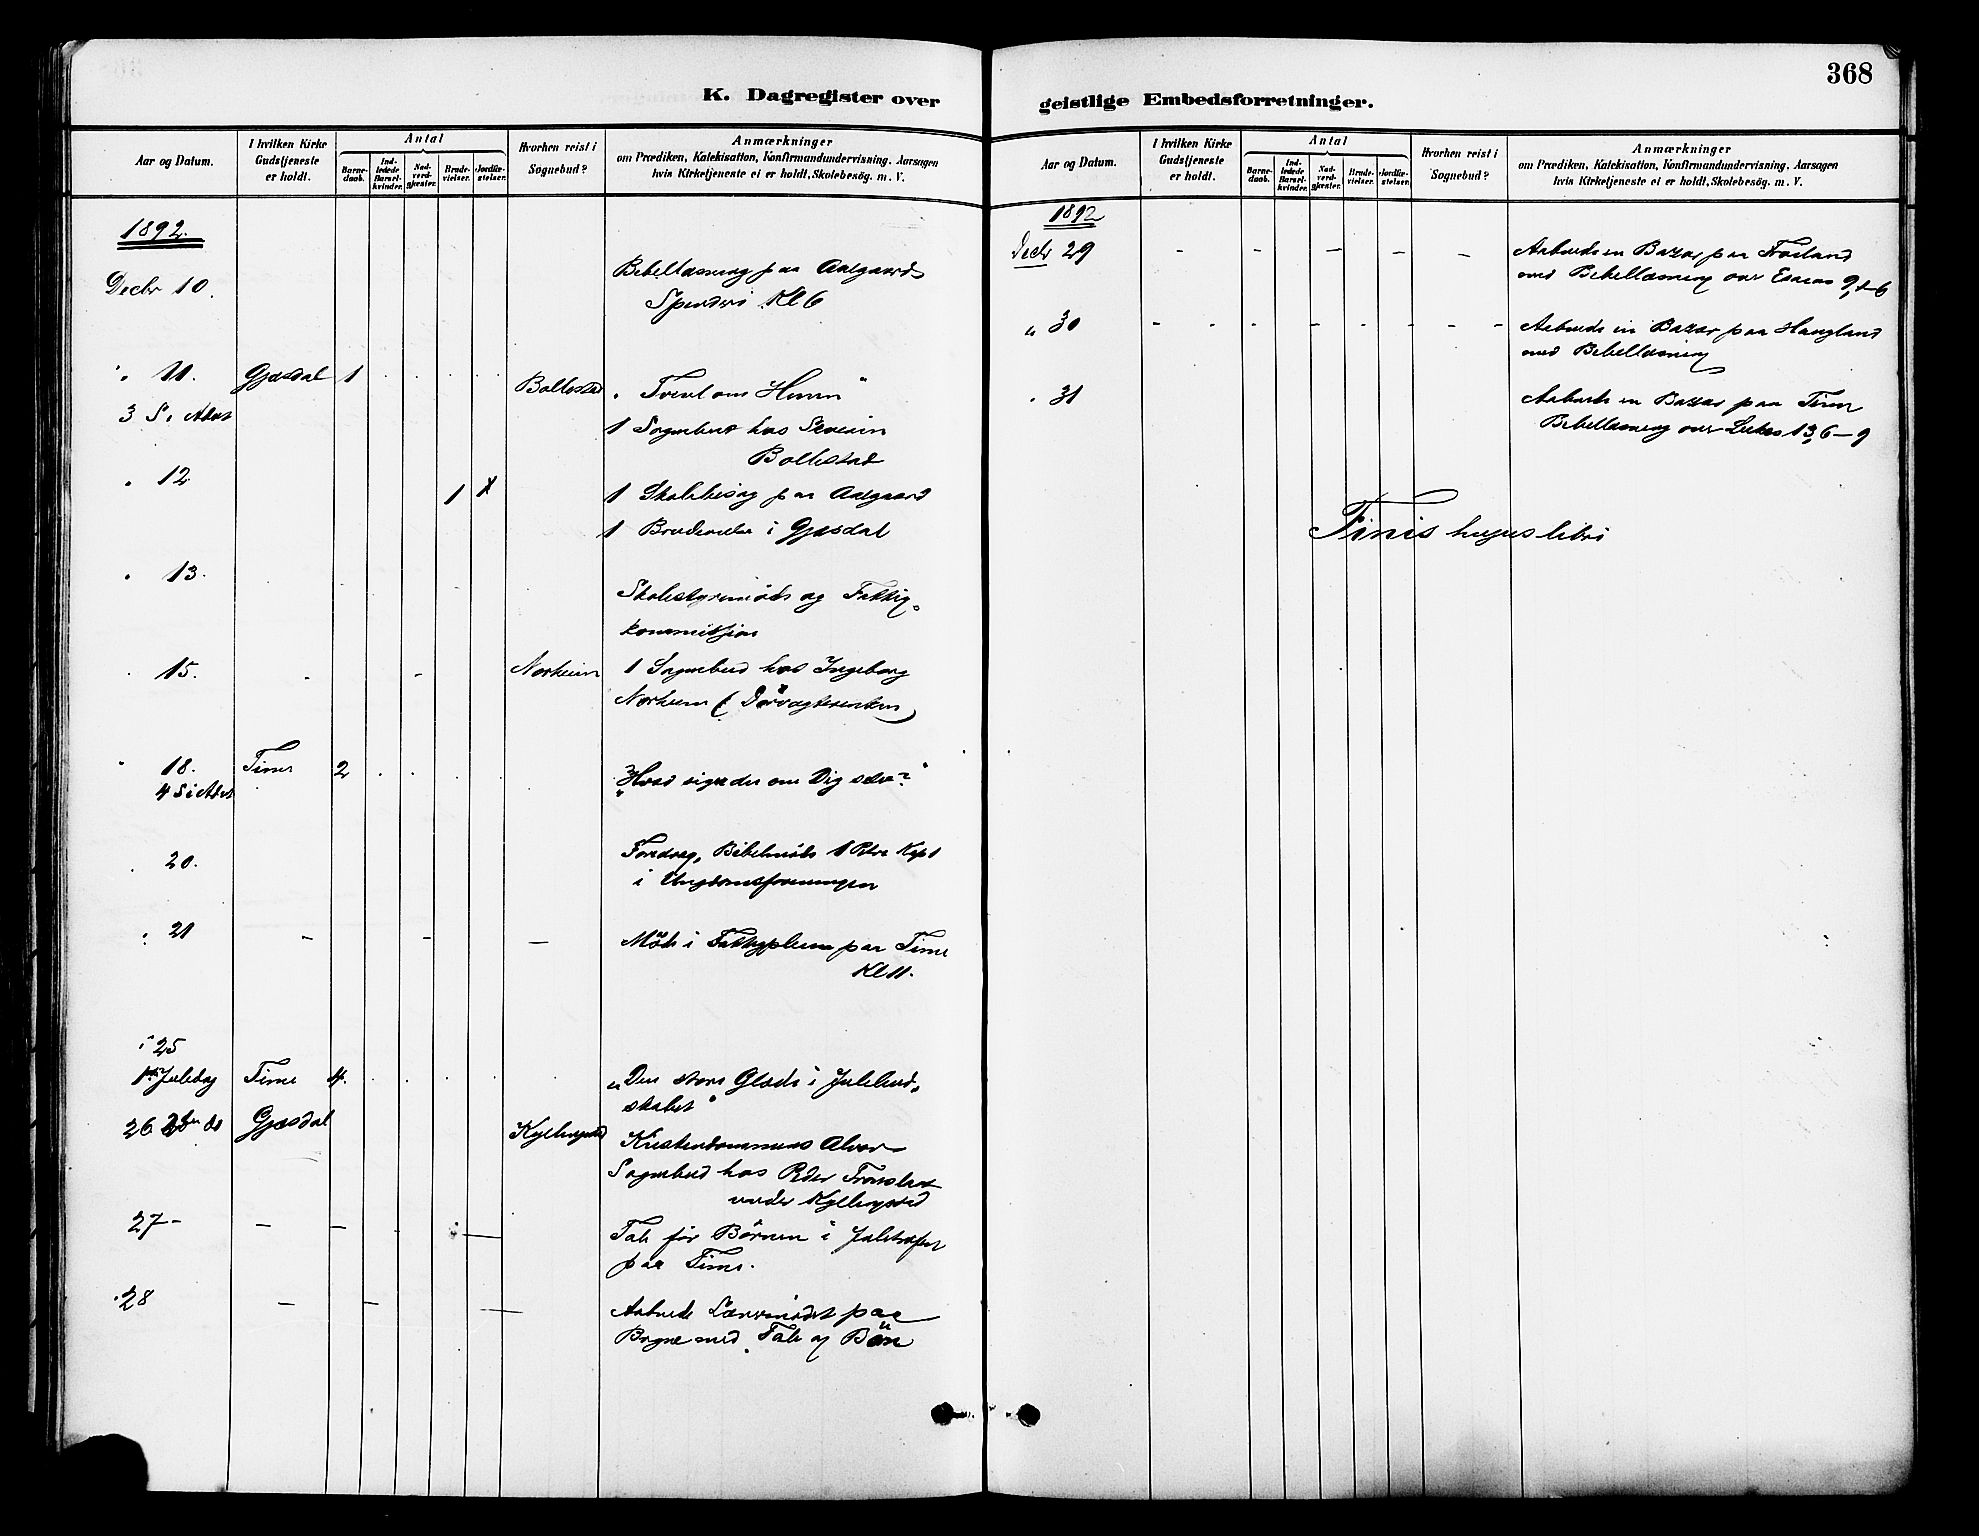 K. Dagregister over
Aar og Datum.
I hvilken Kirke Gudstjeneste er holdt.
Antal
Barne-daab.
Ind-ledede Barsel-kvinder.
Nad-verd-gjester.
Brude-vielser.
Jordfæ-stelser.
Hvorhen reist i Sognebud?
Anmærkninger
om Prædiken, Katekisation, Konfirmandundervisning, Aarsagen
hvis Kirketjeneste ei er holdt, Skolebesøg. m. V.
1892.
Decbr 10.
Bibellæsning paa Aalgaards
Spinderi Kl 6
" 11. Gjæsdal 1 Bollestad " Tvivl om Herren"
3 S. i Advt
1 Sognebud hos
Bollestad
" 12
1 1 1 Skolebesøg paa Aalgaard
1 Brudevielse i Gjæsdal
" 13.
Skolestyremöde og Fattig-
kommission
" 15. Norheim 1 Sognebud hos Ingeborg
Norheim
" 18. Time 2 "Hvad siger du om Dig selv?"
4 S i Advt
" 20. Foredrag, Bibelmöde 1 Petr Kap 1
i Ungdomsforeningen
" 21 - - - Möde i Fattigpleien paa Time
Kl 11.
" 25
1ste Juledag Time 4. "Den store Glæde i Julebud-
skabet"
26 2den do Gjæsdal Kyllingstad Kristendommens Alvor
Sognebud hos Peder
under Kyllingstad
27 - - - - Tale for Børnene i Juletræfest
paa Time.
" 28 - - - Aabnede Lærermødet paa
Bryne med Tale og Bön
geistlige Embedsforretninger.
368
Aar og Datum.
I hvilken Kirke Gudstjeneste er holdt.
Antal
Barne-daab.
Ind-ledede Barsel-kvinder.
Nad-verd-gjester.
Brude-vielser.
Jordfæ-stelser.
Hvorhen reist i Sognebud?
Anmærkninger
om Prædiken, Katekisation, Konfirmandundervisning, Aarsagen
hvis Kirketjeneste ei er holdt, Skolebesøg. m. V.
1892
Decbr 29 - - - - - Aabnede en Bazar paa Frøiland
med Bibellæsning over Esaias 9,
" 30 - - - - - - - - - Aabnede en Bazar paa Haugland
med Bibellæsning
" 31 Aabnede en Bazar paa Time
Bibellæsning over Lukas 13, 6-9
Finis hujus libri